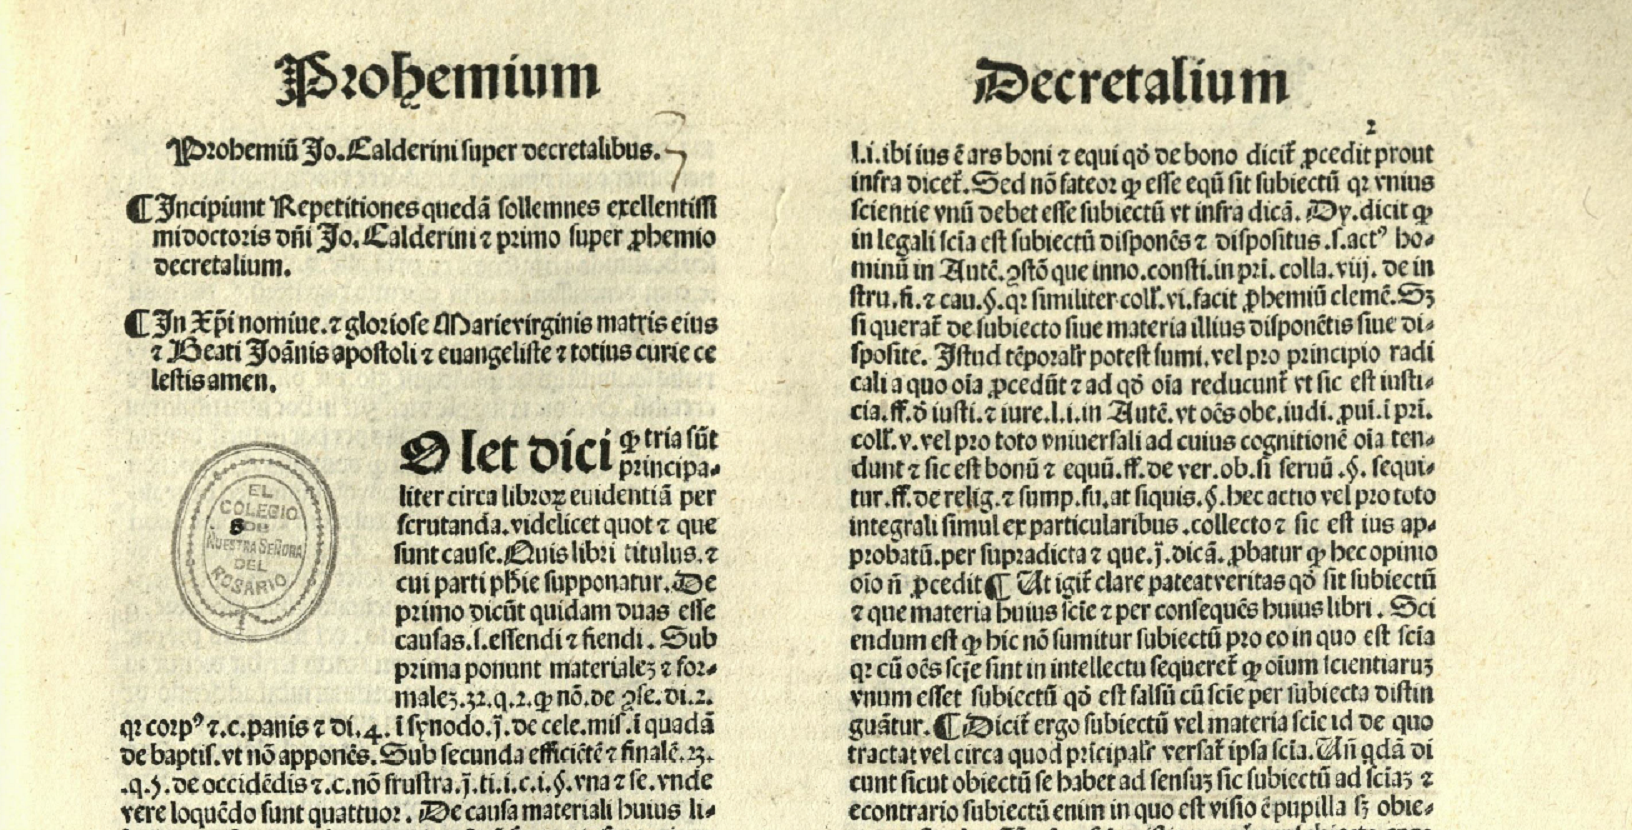 Prohemium
Prohemiū Jo. Calderini super decretalibus.
¶ Incipiunt Repetitiones quedā sollemnes excellentissi
mi doctoris dñi Jo. Calderini ⁊ primo super ꝓhemio
decretalium.
¶ In Xp̄i nomiue. ⁊ gloriose Marie virginis matris eius
⁊ Beati Joānis apostoli ⁊ euangeliste ⁊ totius curie ce
lestis amen.
Olet dici ꝙ tria sūt
principa-
liter circa libroꝝ euidentiā per
scrutanda. videlicet quot ⁊ que
sunt cause. Quis libri titulus. ⁊
cui parti ph̄ie supponatur. De
primo dicūt quidam duas esse
causas. s. essendi ⁊ fiendi. Sub
prima ponunt materialeꝫ ⁊ for-
maleꝫ. 32. q. 2. ꝙ nō. de ꝯse. di. 2.
qꝛ corpꝰ ⁊. c. panis ⁊ di. 4. ī synodo. j̄. de cele. mis. ī quadā
de baptis. vt nō apponēs. Sub secunda efficiētē ⁊ finalē. 23.
.q. 5. de occidēdis ⁊. c. nō frustra. j̄. ti. i. c. i. §. vna ⁊ se. vnde
vere loquēdo sunt quattuor. De causa materiali huius li-
EL
COLEGIO
DE
NUESTRA SEÑORA
DEL
ROSARIO
Decretalium
2
l. i. ibi ius ē ars boni ⁊ equi qd̄ de bono dicit̄ ꝓcedit prout
infra dicet̄. Sed nō fateor ꝙ esse equū sit subiectū qꝛ vnius
scientie vnū debet esse subiectū vt infra dicā. Dy. dicit ꝙ
in legali scīa est subiectū disponēs ⁊ dispositus. s. actꝰ ho-
minū in Autē. ꝯstō que inno. consti. in pri. colla. viij. de in
stru. fi. ⁊ cau. §. qꝛ similiter coll̄. vi. facit ꝓhemiū clemē. Sꝫ
si querat̄ de subiecto siue materia illius disponētis siue di-
sposite. Istud tēporalr̄ potest sumi. vel pro principio radi
cali a quo oīa ꝓcedūt ⁊ ad qd̄ oīa reducunt̄ vt sic est iusti-
cia. ff. d̄ iusti. ⁊ iure. l. i. in Autē. vt oēs obe. iudi. ꝓui. ī pri.
coll̄. v. vel pro toto vniuersali ad cuius cognitionē oīa ten-
dunt ⁊ sic est bonū ⁊ equū. ff. de ver. ob. si seruū. §. sequi-
tur. ff. de relig. ⁊ sump. fu. at siquis. §. hec actio vel pro toto
integrali simul ex particularibus. collecto ⁊ sic est ius ap-
probatū. per supradicta ⁊ que. j̄. dicā. ꝓbatur ꝙ hec opinio
oīo n̄ ꝓcedit ¶ Ut igit̄ clare pateat veritas qd̄ sit subiectū
⁊ que materia huius scīe ⁊ per consequēs huius libri. Sci
endum est ꝙ hic nō sumitur subiectū pro eo in quo est scīa
qꝛ cū oēs scīe sint in intellectu sequeret̄ ꝙ oīum scientiaruꝫ
vnum esset subiectū qd̄ est falsū cū scīe per subiecta distin
guātur. ¶ Dicit̄ ergo subiectū vel materia scīe id de quo
tractat vel circa quod prīcipalr̄ versat̄ ipsa scīa. Uñ qdā di
cunt sicut obiectū se habet ad sensuꝫ sic subiectū ad scīaꝫ ⁊
econtrario subiectū enim in quo est visio ē pupilla sꝫ obie-